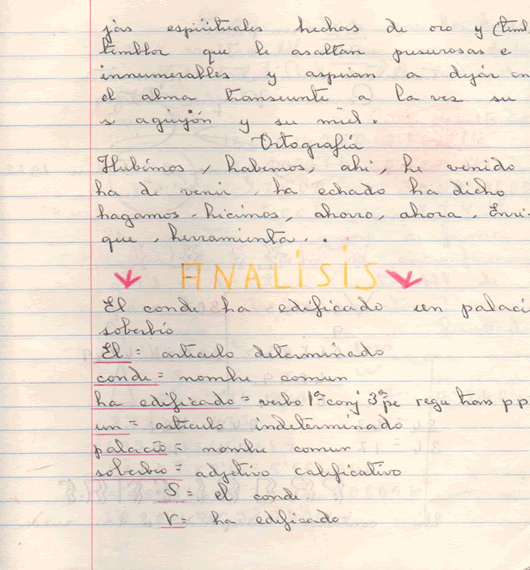 jas espirituales hechas de oro y
temblor que le asaltan presurosas e
innumerables y aspiran a dejar en
el alma transeunte a la vez su
aguijón y su miel.
Ortografía
Hubimos, habemos, ahi, he venido
ha de venir, ha echado ha dicho
hagamos, hicimos, ahorro, ahora, Enri-
que, herramienta..
ANALISIS
El conde ha edificado un palaci
soberbio
El = articulo determinado
conde = nombre comun
ha edificado = verbo 1ª conj 3ª pe regu trans pp
un = articulo indeterminado
palacio = nombre comun
soberbio = adjetivo calificativo
S = el conde
V = ha edificado